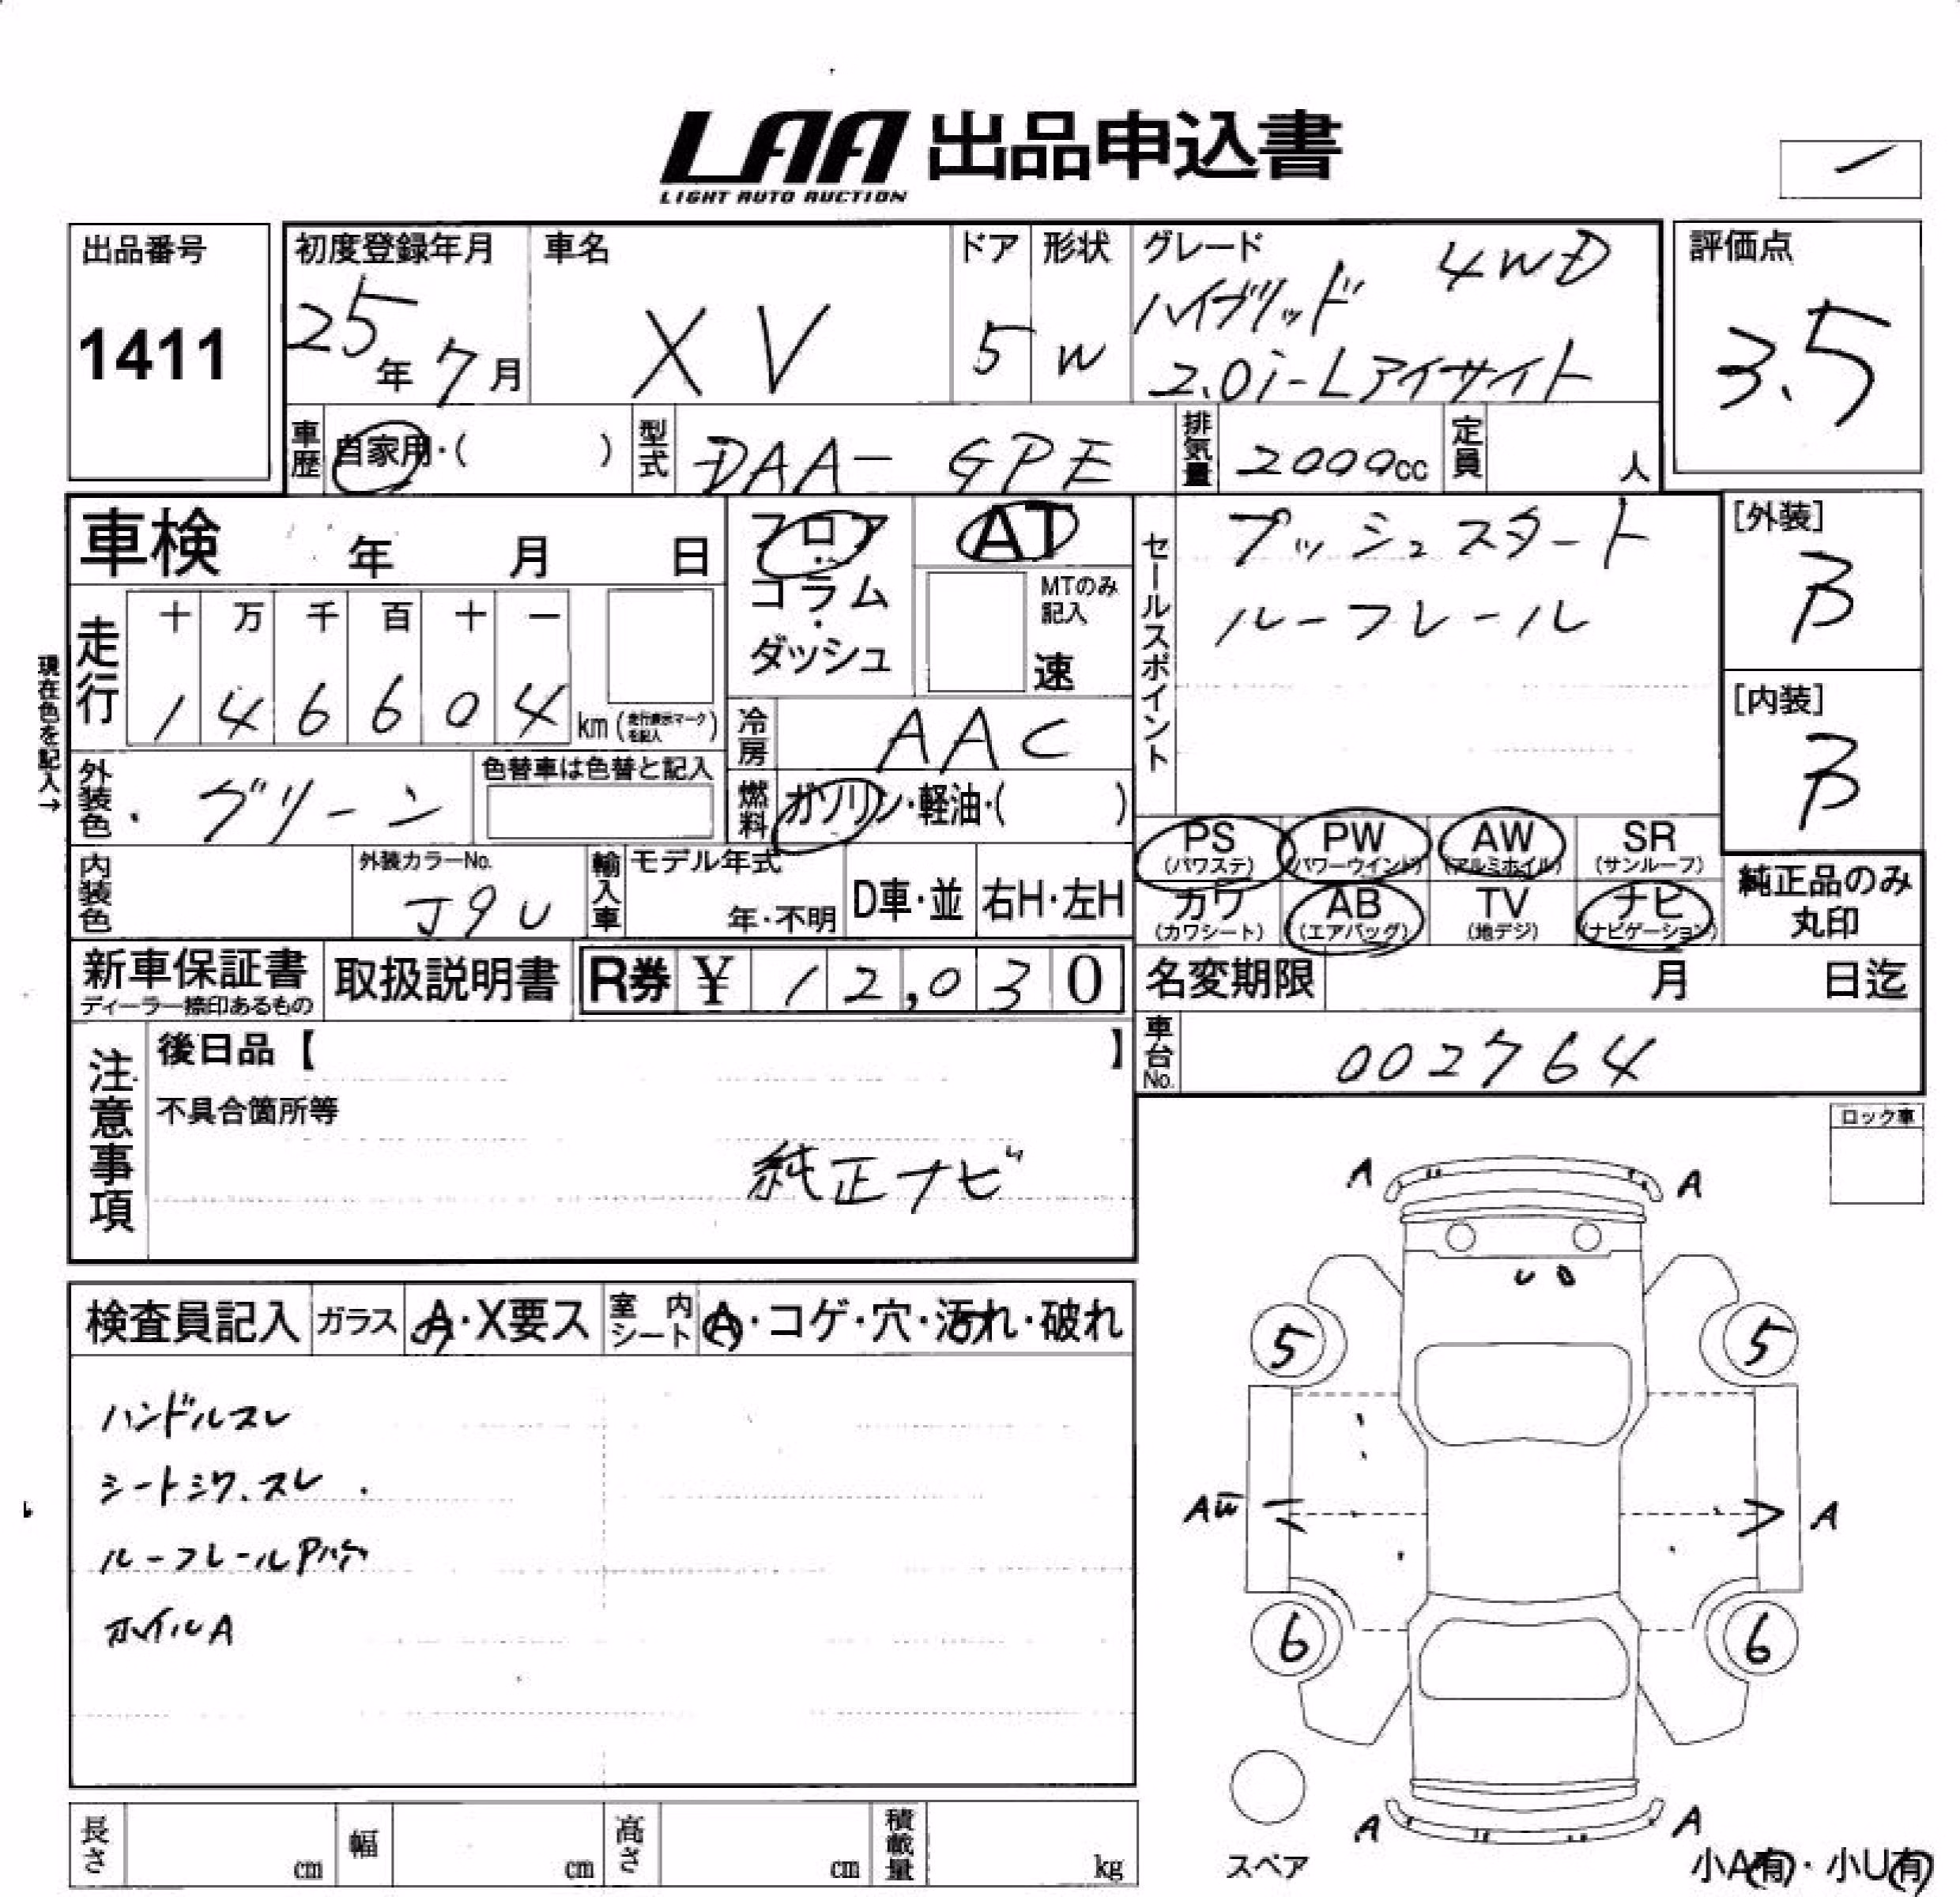 LAA 出品申込書
LIGHT AUTO AUCTION
出品番号
1411
初度登録年月
25年7月
車名
XV
ドア
5
形状
W
グレード
4WD
ハイブリッド
2.0i-Lアイサイト
評価点
3.5
車歴
自家用・( )
型式
DAA-GPE
排気量
2000cc
定員
人
車検 年 月 日
フロア
コラム
ダッシュ
AT
MTのみ
記入
速
セールスポイント
プッシュスタート
ルーフレール
[外装]
B
[内装]
B
現在色を記入→
走行
十 万 千 百 十 一
1 4 6 6 0 4 km (走行表示マークを記入)
冷房
AAC
外装色
グリーン
色替車は色替と記入
燃料
ガソリン・軽油・( )
PS
(パワステ)
PW
(パワーウインド)
AW
(アルミホイル)
SR
(サンルーフ)
カワ
(カワシート)
AB
(エアバッグ)
TV
(地デジ)
ナビ
(ナビゲーション)
純正品のみ
丸印
内装色
外装カラーNo.
J9U
輸入車
モデル年式
年・不明
D車・並
右H・左H
新車保証書
ディーラー捺印あるもの
取扱説明書
R券 ¥ 12,030
名変期限 月 日迄
車台No.
002764
注意事項
後日品【 】
不具合箇所等
純正ナビ
ロック車
検査員記入
ガラス
A・X要ス
室内
シート
A・コゲ・穴・汚れ・破れ
ハンドルスレ
シートシワ、スレ
ルーフレールPハゲ
ホイルA
A
A
5
5
A
6
6
A
A
スペア
小A有・小U有
長さ
cm
幅
cm
高さ
cm
積載量
kg